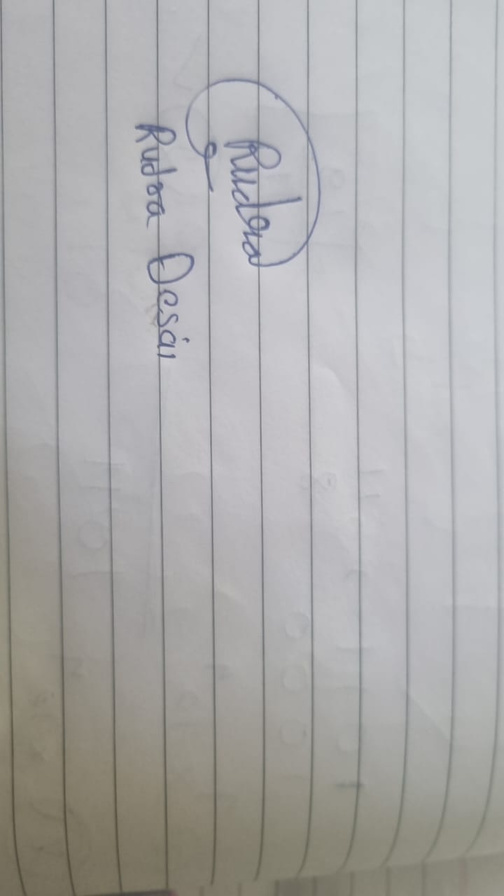 Rudra
Rudra Desai